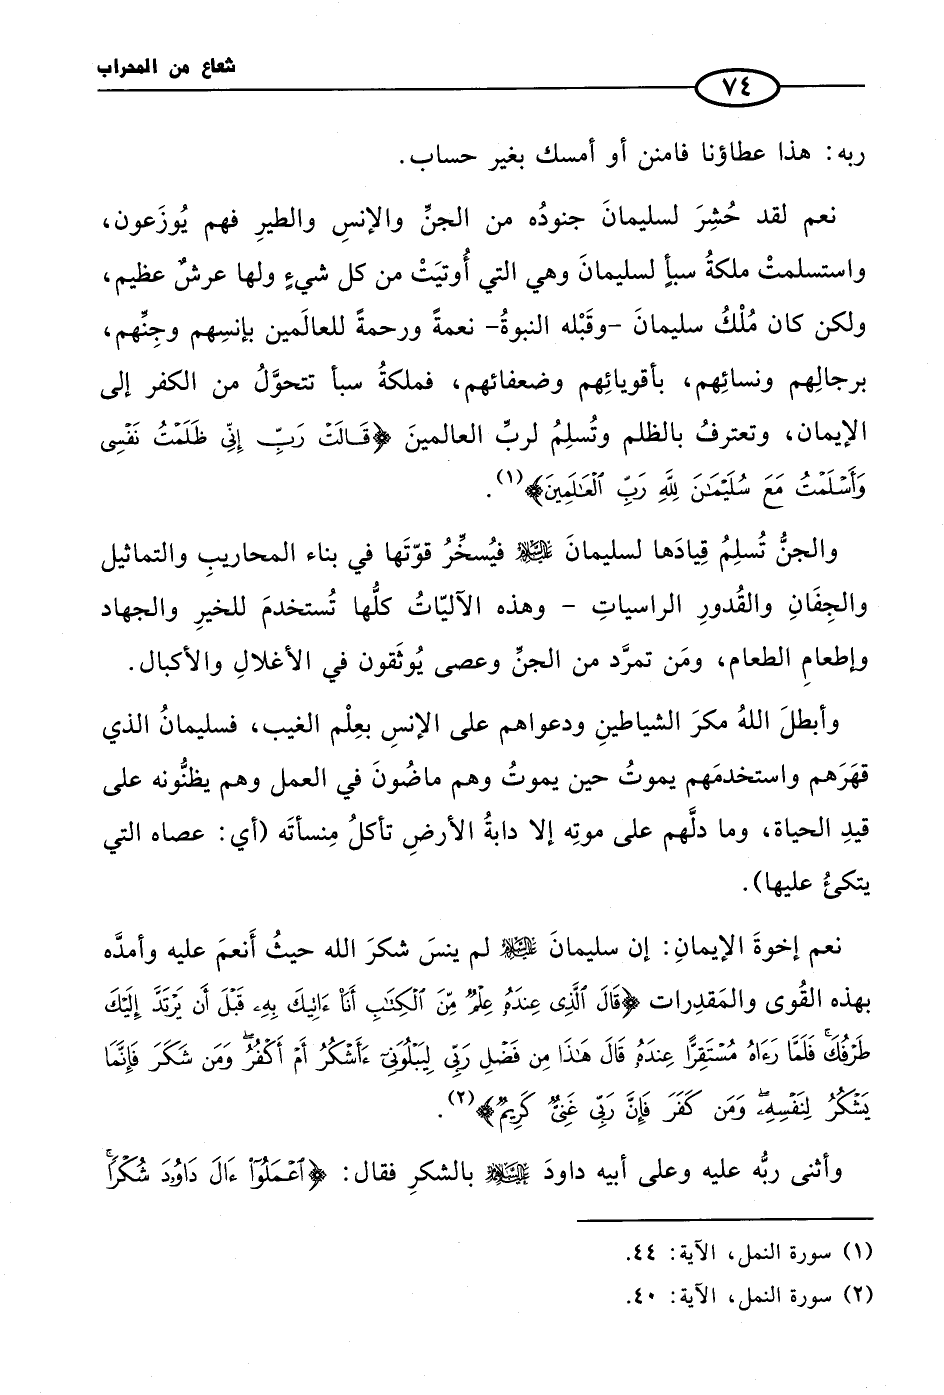 شعاع من المحراب
٧٤
ربه: هذا عطاؤنا فامنن أو أمسك بغير حساب.
نعم لقد حُشِرَ لسليمانَ جنودُه من الجنِّ والإنسِ والطيرِ فهم يُوزَعون،
واستسلمتْ ملكةُ سبأٍ لسليمانَ وهي التي أُوتيَتْ من كل شيءٍ ولها عرشٌ عظيم،
ولكن كان مُلْكُ سليمانَ -وقَبْله النبوةُ- نعمةً ورحمةً للعالَمين بإنسِهم وجِنِّهم،
برجالِهم ونسائِهم، بأقويائِهم وضعفائهم، فملكةُ سبأ تتحوَّلُ من الكفر إلى
الإيمان، وتعترفُ بالظلم وتُسلِمُ لربِّ العالمينَ ﴿قَالَتْ رَبِّ إِنِّي ظَلَمْتُ نَفْسِى
وَأَسْلَمْتُ مَعَ سُلَيْمَٰنَ لِلَّهِ رَبِّ ٱلْعَٰلَمِينَ﴾(١).
والجنُّ تُسلِمُ قِيادَها لسليمانَ عليه السلام فيُسخِّرُ قوّتَها في بناء المحاريبِ والتماثيل
والجِفَانِ والقُدورِ الراسياتِ - وهذه الآليّاتُ كلُّها تُستخدمَ للخيرِ والجهاد
وإطعامِ الطعام، ومَن تمرَّد من الجنِّ وعصى يُوثَقون في الأغلالِ والأكبال.
وأبطلَ اللهُ مكرَ الشياطينِ ودعواهم على الإنسِ بعِلْم الغيب، فسليمانُ الذي
قهَرَهم واستخدمَهم يموتُ حين يموتُ وهم ماضُونَ في العمل وهم يظنُّونه على
قيدِ الحياة، وما دلَّهم على موتِه إلا دابةُ الأرضِ تأكلُ مِنسأتَه (أي: عصاه التي
يتكئُ عليها).
نعم إخوةَ الإيمانِ: إن سليمانَ عليه السلام لم ينسَ شكرَ الله حيثُ أَنعمَ عليه وأمدَّه
بهذه القُوى والمَقدِرات ﴿قَالَ ٱلَّذِى عِندَهُۥ عِلْمٌ مِّنَ ٱلْكِتَٰبِ أَنَا۠ ءَاتِيكَ بِهِۦ قَبْلَ أَن يَرْتَدَّ إِلَيْكَ
طَرْفُكَ ۚ فَلَمَّا رَءَاهُ مُسْتَقِرًّا عِندَهُۥ قَالَ هَٰذَا مِن فَضْلِ رَبِّى لِيَبْلُوَنِىٓ ءَأَشْكُرُ أَمْ أَكْفُرُ ۖ وَمَن شَكَرَ فَإِنَّمَا
يَشْكُرُ لِنَفْسِهِۦ ۖ وَمَن كَفَرَ فَإِنَّ رَبِّى غَنِىٌّ كَرِيمٌ﴾(٢).
وأثنى ربُّه عليه وعلى أبيه داودَ عليه السلام بالشكرِ فقال: ﴿ٱعْمَلُوٓا۟ ءَالَ دَاوُۥدَ شُكْرًا ۚ
(١) سورة النمل، الآية: ٤٤.
(٢) سورة النمل، الآية: ٤٠.